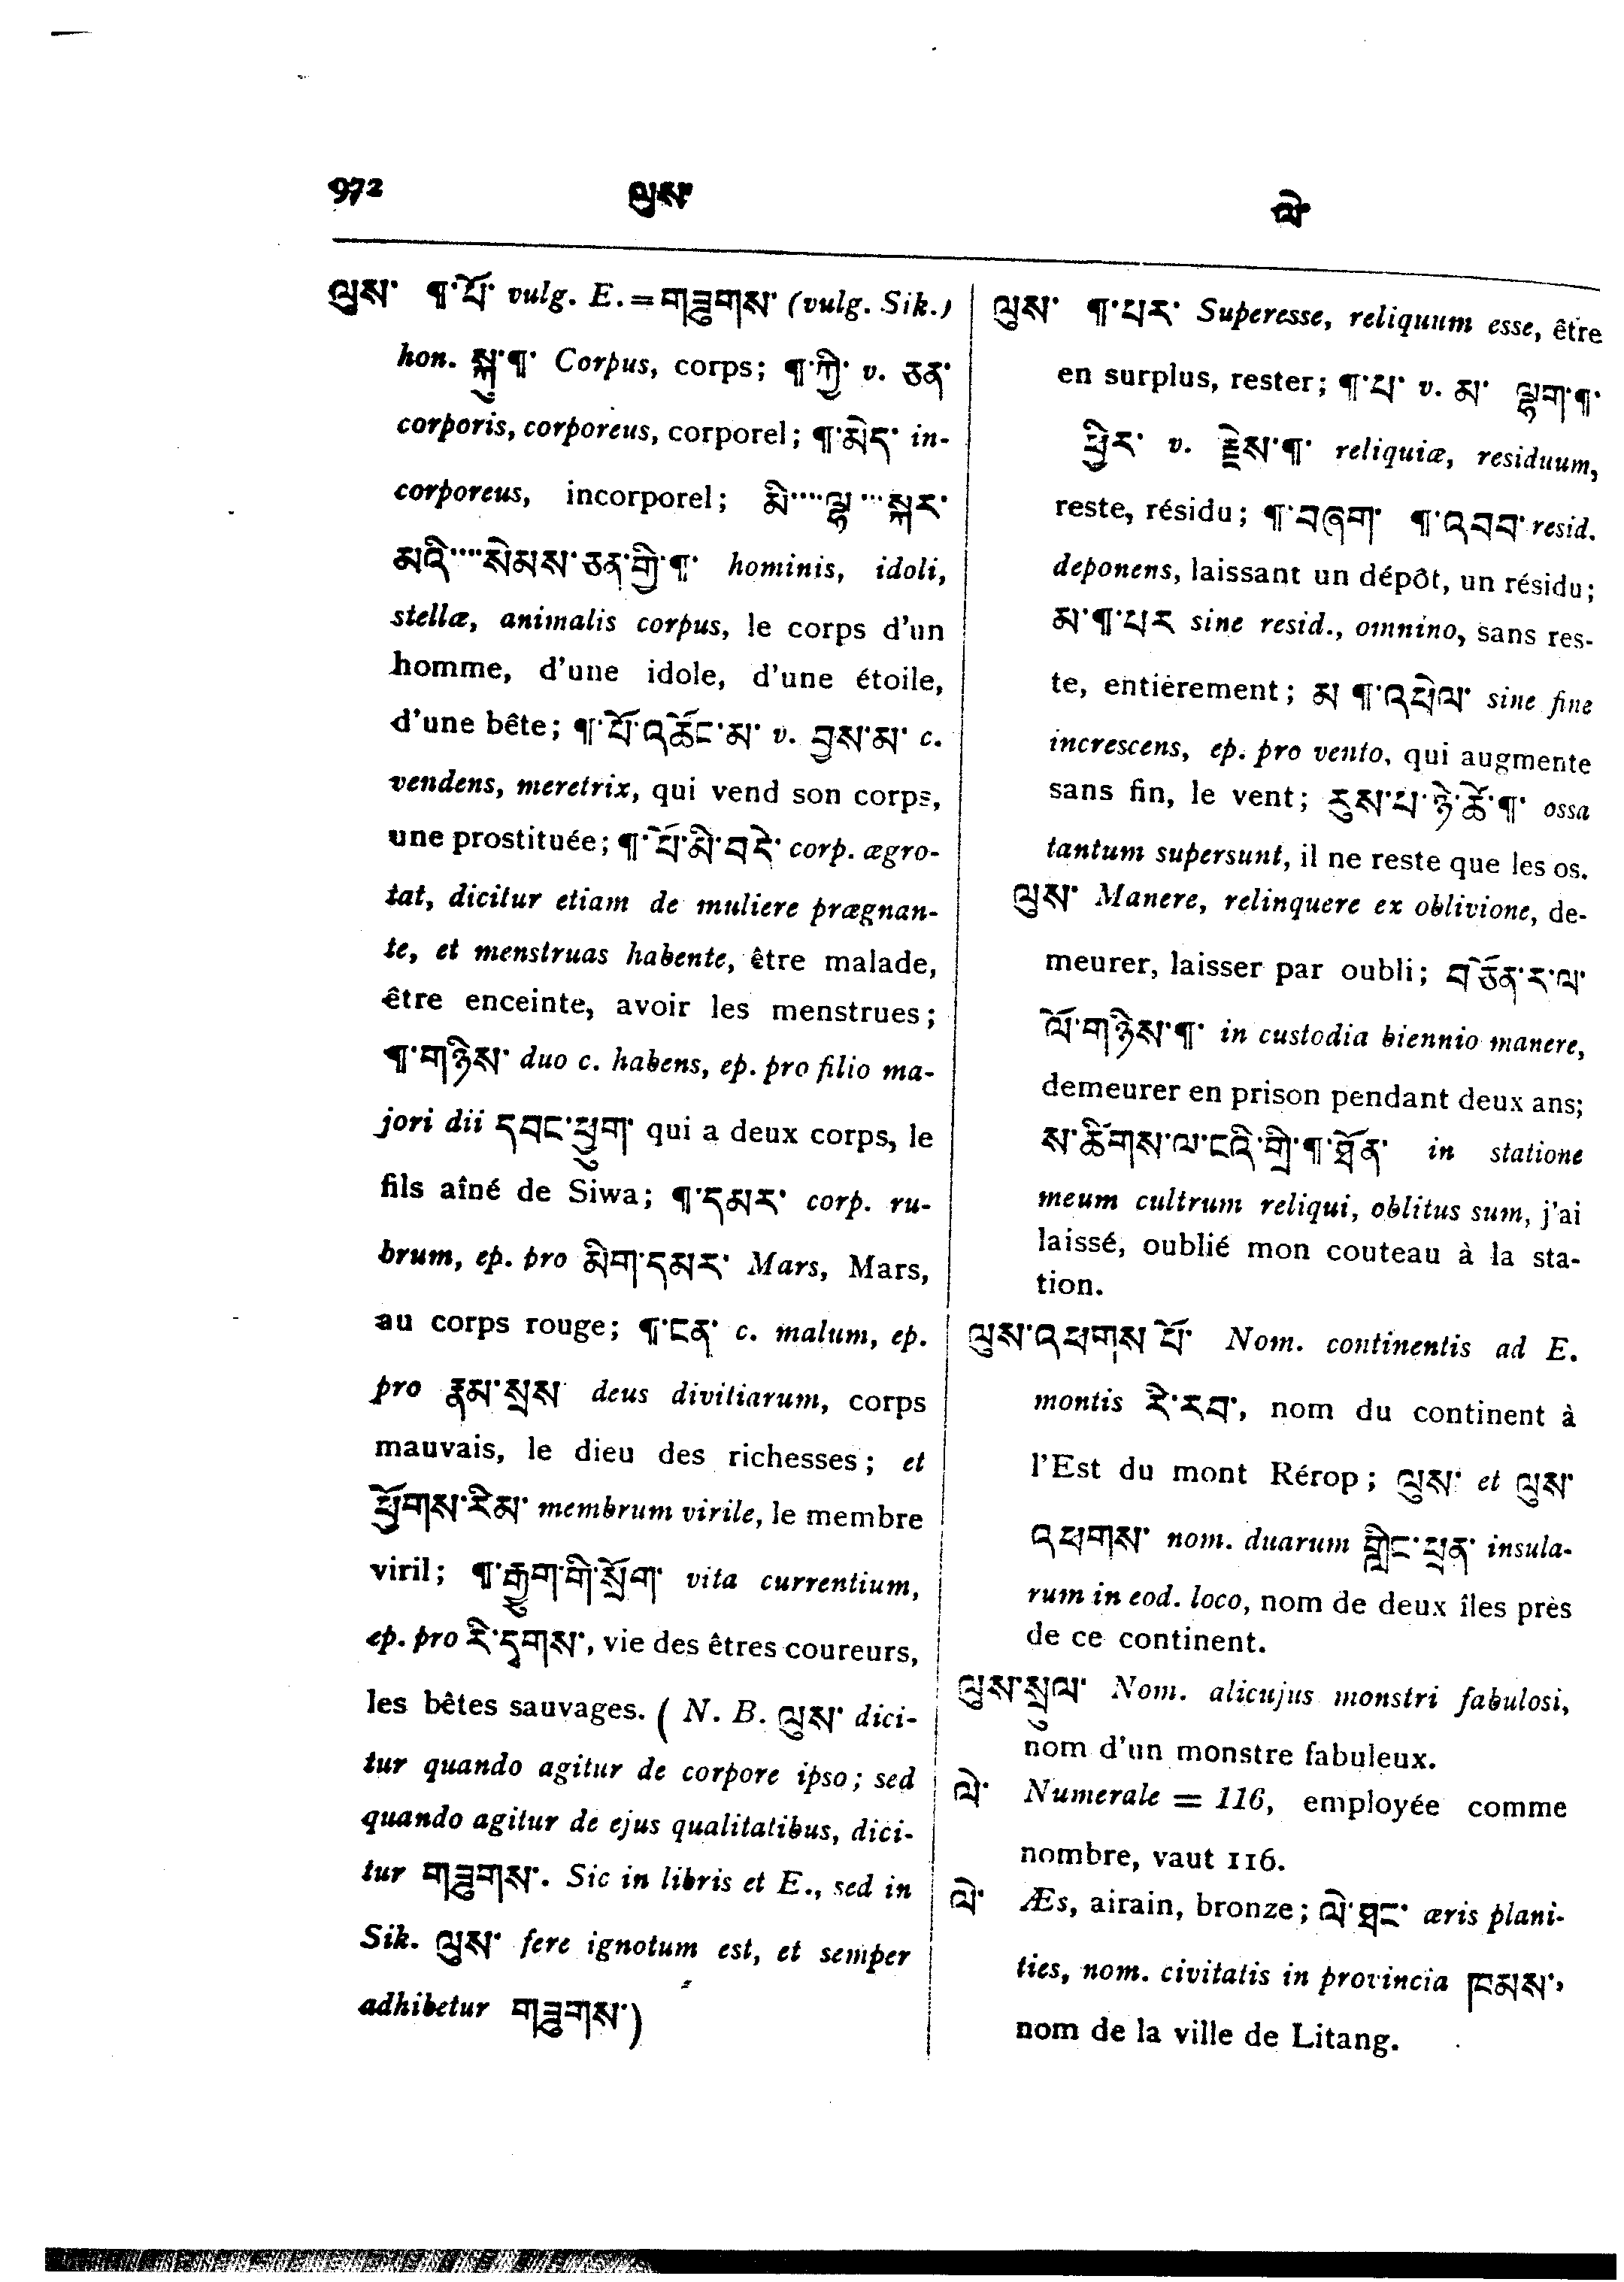 972 ལུས་ ལེ་
ལུས་ ¶་པོ་ vulg. E.=གཟུགས་ (vulg. Sik.)
hon. སྐུ་¶་ Corpus, corps; ¶་ཀྱི་ v. ཅན་
corporis, corporeus, corporel; ¶་མེད་ in-
corporeus, incorporel; མི་····ལྷ་···སྐར་
མའི་····སེམས་ཅན་གྱི་¶་ hominis, idoli,
stellæ, animalis corpus, le corps d'un
homme, d'une idole, d'une étoile,
d'une bête; ¶་པོ་འཚོང་མ་ v. བྱས་མ་ c.
vendens, meretrix, qui vend son corps,
une prostituée; ¶་པོ་མི་བདེ་ corp. ægro-
tat, dicitur etiam de muliere prægnan-
te, et menstruas habente, être malade,
être enceinte, avoir les menstrues;
¶་གཉིས་ duo c. habens, ep. pro filio ma-
jori dii དབང་ཕྱུག་ qui a deux corps, le
fils aîné de Siwa; ¶་དམར་ corp. ru-
brum, ep. pro མིག་དམར་ Mars, Mars,
au corps rouge; ¶་ངན་ c. malum, ep.
pro རྣམ་སྲས་ deus divitiarum, corps
mauvais, le dieu des richesses; et
ཕྱོགས་རིམ་ membrum virile, le membre
viril; ¶་རྒྱུག་གི་སྲོག་ vita currentium,
ep. pro རི་དྭགས་, vie des êtres coureurs,
les bêtes sauvages. ( N. B. ལུས་ dici-
tur quando agitur de corpore ipso; sed
quando agitur de ejus qualitatibus, dici-
tur གཟུགས་. Sic in libris et E., sed in
Sik. ལུས་ fere ignotum est, et semper
adhibetur གཟུགས་)
ལུས་ ¶་པར་ Superesse, reliquum esse, être
en surplus, rester; ¶་པ་ v. མ་ ལྷག་¶་
ཕྱིར་ v. རྗེས་¶་ reliquiæ, residuum,
reste, résidu; ¶་བཞག་ ¶་འབབ་ resid.
deponens, laissant un dépôt, un résidu;
མ་¶་པར sine resid., omnino, sans res-
te, entièrement; མ ¶་འཕེལ་ sine fine
increscens, ep. pro vento, qui augmente
sans fin, le vent; རུས་པ་ཉེ་ཚོ་¶་ ossa
tantum supersunt, il ne reste que les os.
ལུས་ Manere, relinquere ex oblivione, de-
meurer, laisser par oubli; བཙོན་ར་ལ་
ལོ་གཉིས་¶་ in custodia biennio manere,
demeurer en prison pendant deux ans;
ས་ཚིགས་ལ་ངའི་གྲི་¶་ཐོན་ in statione
meum cultrum reliqui, oblitus sum, j'ai
laissé, oublié mon couteau à la sta-
tion.
ལུས་འཕགས་པོ་ Nom. continentis ad E.
montis རི་རབ་, nom du continent à
l'Est du mont Rérop; ལུས་ et ལུས་
འཕགས་ nom. duarum གླིང་ཕྲན་ insula-
rum in eod. loco, nom de deux îles près
de ce continent.
ལུས་སྲུལ་ Nom. alicujus monstri fabulosi,
nom d'un monstre fabuleux.
ལེ་ Numerale = 116, employée comme
nombre, vaut 116.
ལེ་ Æs, airain, bronze; ལེ་ཐང་ æris plani-
ties, nom. civitatis in provincia ཁམས་,
nom de la ville de Litang.